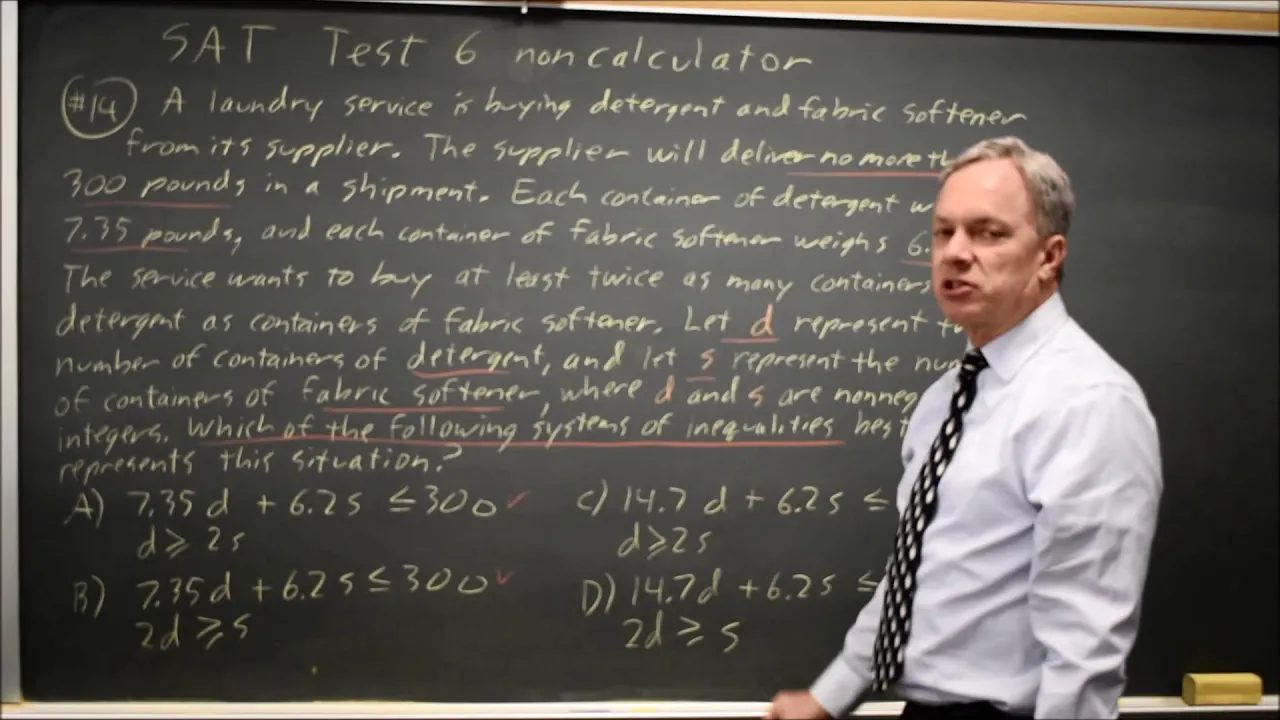 SAT Test 6 noncalculator
#14 A laundry service is buying detergent and fabric softener
from its supplier. The supplier will deliver no more
300 pounds in a shipment. Each container of detergent
7.35 pounds, and each container of fabric softener weighs 6.
The service wants to buy at least twice as many containers
detergent as containers of fabric softener. Let d represent
number of containers of detergent, and let s represent the
of containers of fabric softener, where d and s are
integers. Which of the following systems of inequalities
represents this situation?
A) 7.35d + 6.2s ≤ 300 ✓
d ≥ 2s
B) 7.35d + 6.2s ≤ 300 ✓
2d ≥ s
C) 14.7d + 6.2s ≤
d ≥ 2s
D) 14.7d + 6.2s ≤
2d ≥ s